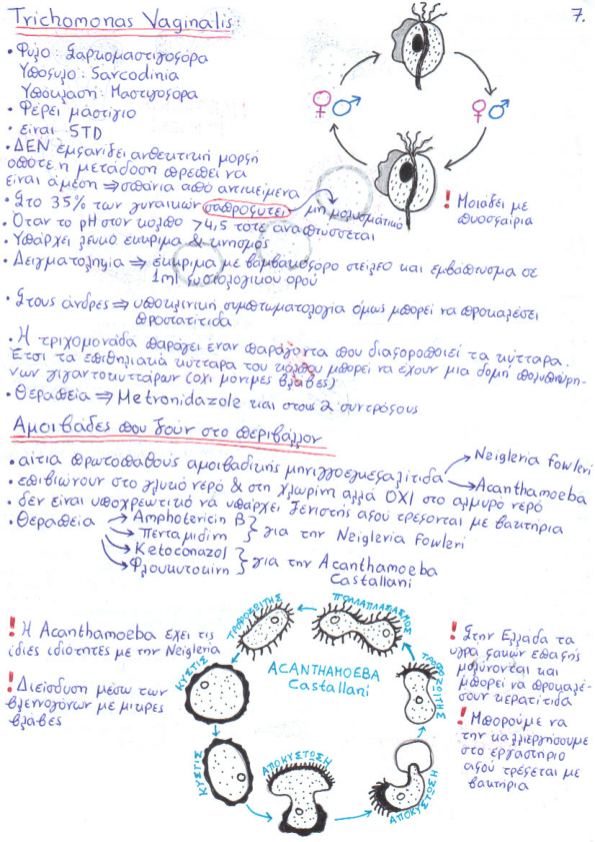 Trichomonas Vaginalis:
7.
• Φύλο: Σαρκομαστιγοφόρα
Υποφυλο: Sarcodinia
Υπόκλαση: Μαστιγοφόρα
• Φέρει μαστίγιο
• είναι STD
• ΔΕΝ εμφανίζει ανθεκτική μορφή
οπότε η μετάδοση πρέπει να
είναι άμεση ⇒ σπάνια από αντικείμενα
• Στο 35% των γυναικών σαπροφυτεί → μη μολυσματικό
• Όταν το pH στον κόλπο >4,5 τότε αναπτύσσεται
• Υπάρχει λευκό έκκριμα & κνησμός
• Δειγματοληψία ⇒ έκκριμα με βαμβακοφόρο στειλεό και εμβάπτισμα σε
1ml φυσιολογικού ορού
• Στους άνδρες ⇒ υποκλινική συμπτωματολογία όμως μπορεί να προκαλέσει
προστατίτιδα
• Η τριχομονάδα παράγει έναν παράγοντα που διαφοροποιεί τα κύτταρα.
Έτσι τα επιθηλιακά κύτταρα του κόλπου μπορεί να έχουν μια δομή πολυπύρη-
νων γιγαντοκυττάρων (όχι μόνιμες βλάβες)
• Θεραπεία ⇒ Metronidazole και στους 2 συντρόφους
♀♂
♀♂
! Μοιάζει με
πυοσφαίρια
Αμοιβάδες που ζουν στο περιβάλλον
• αίτια πρωτοπαθούς αμοιβαδικής μηνιγγοεγκεφαλίτιδα
Neigleria fowleri
Acanthamoeba
• επιβιώνουν στο γλυκό νερό & στη χλωρίνη αλλά ΟΧΙ στο αλμυρό νερό
• δεν είναι υποχρεωτικό να υπάρχει ξενιστής αφού τρέφονται με βακτήρια
• Θεραπεία → Amphotericin B
→ Πενταμιδίνη } για την Neigleria fowleri
→ Ketoconazol
→ Φλουκυτοκίνη } για την Acanthamoeba
Castallani
! Η Acanthamoeba έχει τις
ίδιες ιδιότητες με την Neigleria
! Διείσδυση μέσω των
βλεννογόνων με μικρές
βλάβες
ΤΡΟΦΟΖΩΙΤΗΣ
ΠΟΛΛΑΠΛΑΣΙΑΣΜΟΣ
ΤΡΟΦΟΖΩΙΤΗΣ
ΚΥΣΤΙΣ
ACANTHAMOEBA
Castallani
ΚΥΣΤΙΣ
ΑΠΟΚΥΣΤΩΣΗ
ΑΠΟΚΥΣΤΩΣΗ
! Στην Ελλάδα τα
υγρά φακών επαφής
μολύνονται και
μπορεί να προκαλέ-
σουν κερατίτιδα
! Μπορούμε να
την καλλιεργήσουμε
στο εργαστήριο
αφού τρέφεται με
βακτήρια